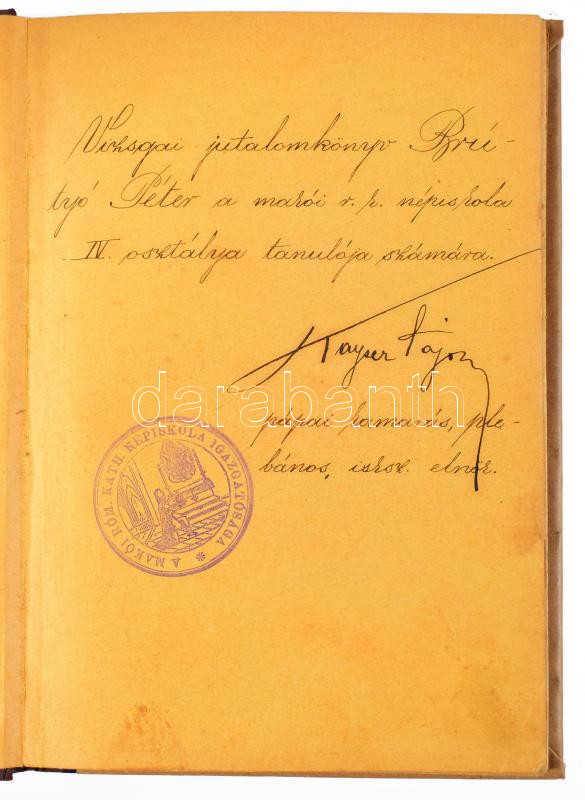 Vizsgai jutalomkönyv Brú-
tyó Péter a makói r. k. népiskola
IV. osztálya tanulója számára.
Kayser Lajos
pápai kamarás, plé-
bános, isksz. elnök.
A MAKÓI RÓM. KATH. NÉPISKOLA IGAZGATÓSÁGA
darabanth
.com